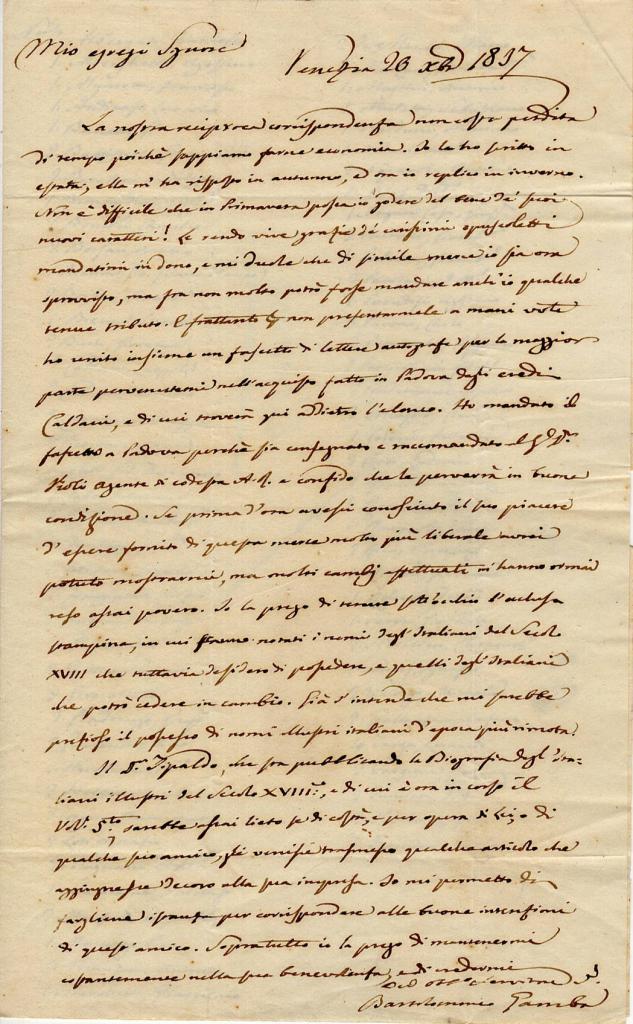 Mio egregi Signore
Venezia 23 xbr 1837
La nostra reciproca corrispondenza non costa perdita
di tempo poichè sappiamo farne economia. Io le ho scritto in
estate, ella m'ha risposto in autunno, ed ora io replico in inverno.
Non è difficile che in Primavera possa io godere del bene de' suoi
nuovi caratteri! Le rendo vive grazie de' carissimi opuscoletti
mandatimi in dono, e mi duole che di simile merce io sia ora
sprovvisto, ma fra non molto potrò forse mandare anch'io qualche
tenue tributo. E frattanto per non presentarmele a mani vote
ho unito insieme un fascetto di lettere autografe per la maggior
parte pervenutemi nell'acquisto fatto in Padova dagli eredi
Caldani, e di cui troverà qui addietro l'elenco. Ho mandato il
fascetto a Padova perchè sia consegnato e raccomandato al
agente di codesta A. R. e confido che le perverrà in buona
condizione. Se prima d'ora avessi conosciuto il suo piacere
d'essere fornito di questa merce molto più liberale avrei
potuto mostrarmi, ma molti cambj effettuati m'hanno ormai
reso assai povero. Io la prego di tenere sott'occhio l'acclusa
stampina, in cui stanno notati i nomi degl'Italiani del Secolo
XVIII che tuttavia desidero di possedere, e quelli degl'Italiani
che potrò cedere in cambio. Già s'intende che mi sarebbe
prezioso il possesso di nomi illustri italiani d'epoca più rimota.
Il Dr. Tipaldo, che sta pubblicando la Biografia degl'Ita-
liani illustri del Secolo XVIII°, e di cui è ora in corso il
Vol. 5to sarebbe assai lieto se di costà, e per opera di Lei, o di
qualche suo amico, gli venisse trasmesso qualche articolo che
aggiungesse decoro alla sua impresa. Io mi permetto di
fargliene istanza per corrispondere alle buone intenzioni
di quest'amico. Sopratutto io la prego di mantenermi
costantemente nella sua benevolenza, e di credermi
Bartolommeo Gamba